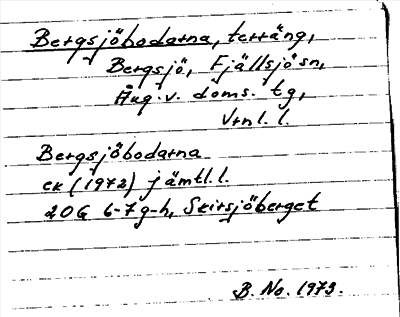 Bergsjöbodarna, terräng,
Bergsjö, Fjällsjö sn,
Ång. v. doms. tg,
Vrnl. l.
Bergsjöbodarna
ek (1972) jämtl. l.
20G 6-7g-h, Skirsjöberget
B. No. 1973.